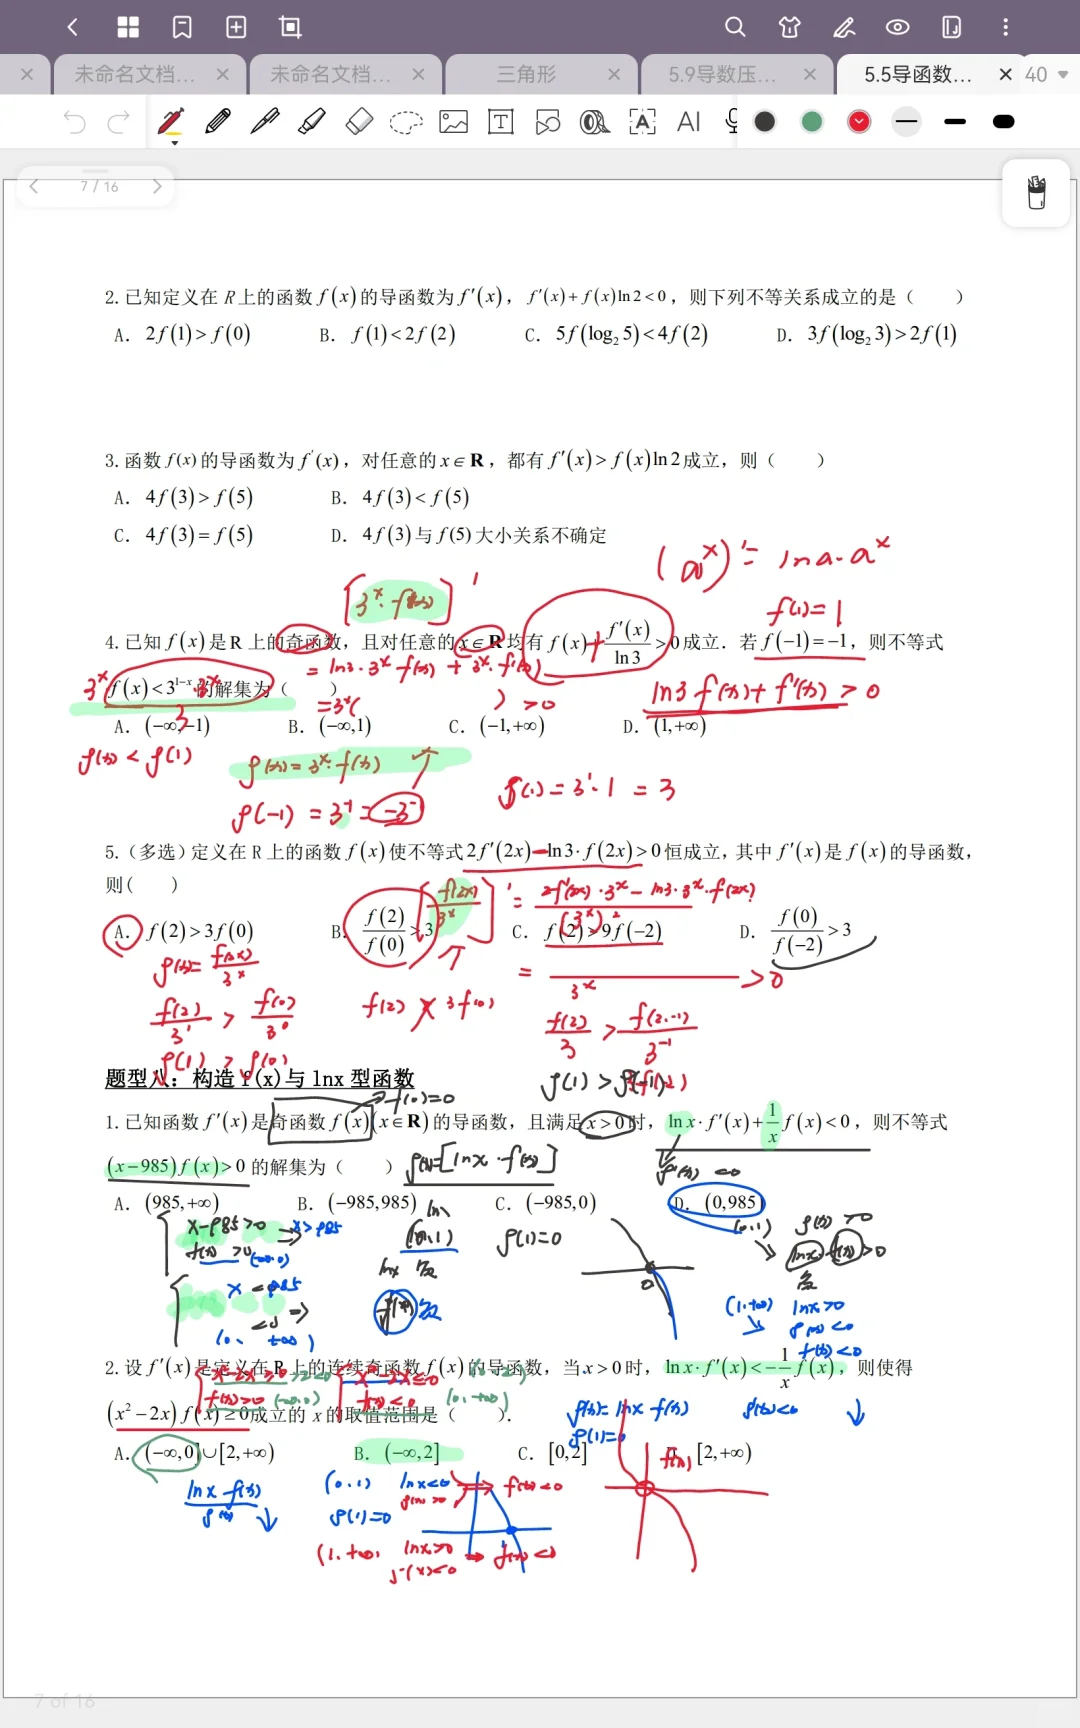 未命名文档... 未命名文档... 三角形 5.9导数压... 5.5导函数... 40
7 / 16
2.已知定义在 R上的函数 f(x)的导函数为f′(x), f′(x)+f(x)ln2<0, 则下列不等关系成立的是( )
A. 2f(1)>f(0) B. f(1)<2f(2) C. 5f(log₂5)<4f(2) D. 3f(log₂3)>2f(1)
3.函数 f(x)的导函数为f′(x), 对任意的x∈R, 都有f′(x)>f(x)ln2成立, 则( )
A. 4f(3)>f(5) B. 4f(3)<f(5)
C. 4f(3)=f(5) D. 4f(3)与f(5)大小关系不确定
(aˣ)′= lna·aˣ
[3ˣ·f(x)]′
f(1)=1
4.已知 f(x)是R 上的奇函数, 且对任意的x∈R均有 f(x)+f′(x)/ln3>0成立. 若f(-1)=-1, 则不等式
= ln3·3ˣ f(x) + 3ˣ·f′(x)
f(x)<3¹⁻ˣ的解集为( )
ln3 f(x)+f′(x) > 0
=3ˣ( ) >0
A. (-∞,-1) B. (-∞,1) C. (-1,+∞) D. (1,+∞)
g(x) < g(1)
g(x)=3ˣ·f(x)
g(1)=3¹·1 = 3
5.(多选)定义在 R上的函数 f(x)使不等式2f′(2x)-ln3·f(2x)>0恒成立, 其中f′(x)是f(x)的导函数,
则( )
[f(2x)/3ˣ]′ = 2f′(2x)·3ˣ-ln3·3ˣ·f(2x)/(3ˣ)²
A. f(2)>3f(0) B. f(2)/f(0)>3 C. f(2)>9f(-2) D. f(0)/f(-2)>3
g(x)=f(2x)/3ˣ
= /3ˣ >0
f(2)/3¹ > f(0)/3⁰
f(2) 3f(0)
f(2)/3 > f(2·-1)/3⁻¹
g(1) > g(0)
g(1) > g(-1)
题型八: 构造 f(x)与 lnx 型函数
f(0)=0
1.已知函数 f′(x)是奇函数f(x)(x∈R)的导函数, 且满足x>0时, lnx·f′(x)+1/x f(x)<0, 则不等式
(x-985)f(x)>0 的解集为( )
g(x)=[lnx·f(x)]
g′(x) <0
A. (985,+∞) B. (-985,985) C. (-985,0) D. (0,985)
x-985>0 → x>985
f(x) >0 (-∞,0)
(0,1)
g(1)=0
(0,1) g(x) >0
lnx·f(x)>0
lnx 负
负
x <985
<0 ⇒
(0, +∞)
f(x) 负
(1,+∞) lnx>0
g(x)<0
f(x)<0
2.设f′(x)是定义在 R上的连续奇函数f(x)的导函数, 当x>0时, lnx·f′(x)<-1/x f(x), 则使得
x²-2x≥0
f(x)≥0 (-∞,0)
x²-2x≤0
f(x)<0 (0,+∞)
(x²-2x)f(x)≥0成立的 x 的取值范围是( ).
g(x)=lnx·f(x) g′(x)<0
g(1)=0
A. (-∞,0]∪[2,+∞) B. (-∞,2] C. [0,2] [2,+∞)
f(x)
lnx·f(x)
g(x)
(0,1) lnx<0
g(x) >0 ⇒ f(x)<0
g(1)=0
(1,+∞) lnx>0
g(x)<0 ⇒ f(x)<0
7 of 16